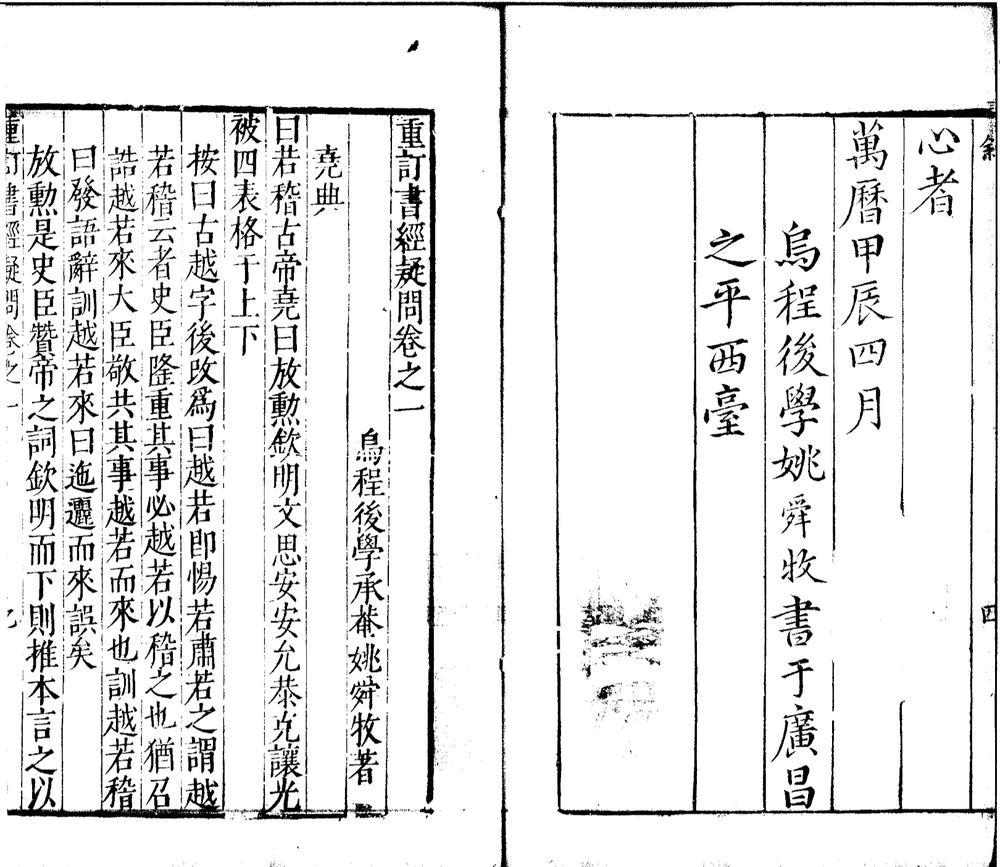 敘
四
心者
萬曆甲辰四月
烏程後學姚舜牧書于廣昌
之平西臺
重訂書經疑問卷之一
烏程後學承菴姚舜牧著
堯典
曰若稽古帝堯曰放勳欽明文思安安允恭克讓光
被四表格于上下
按曰古越字後改爲曰越若卽惕若肅若之謂越
若稽云者史臣隆重其事必越若以稽之也猶召
誥越若來大臣敬共其事越若而來也訓越若稽
曰發語辭訓越若來曰迤邐而來誤矣
放勳是史臣贊帝之詞欽明而下則推本言之以
重訂書經疑問卷之一